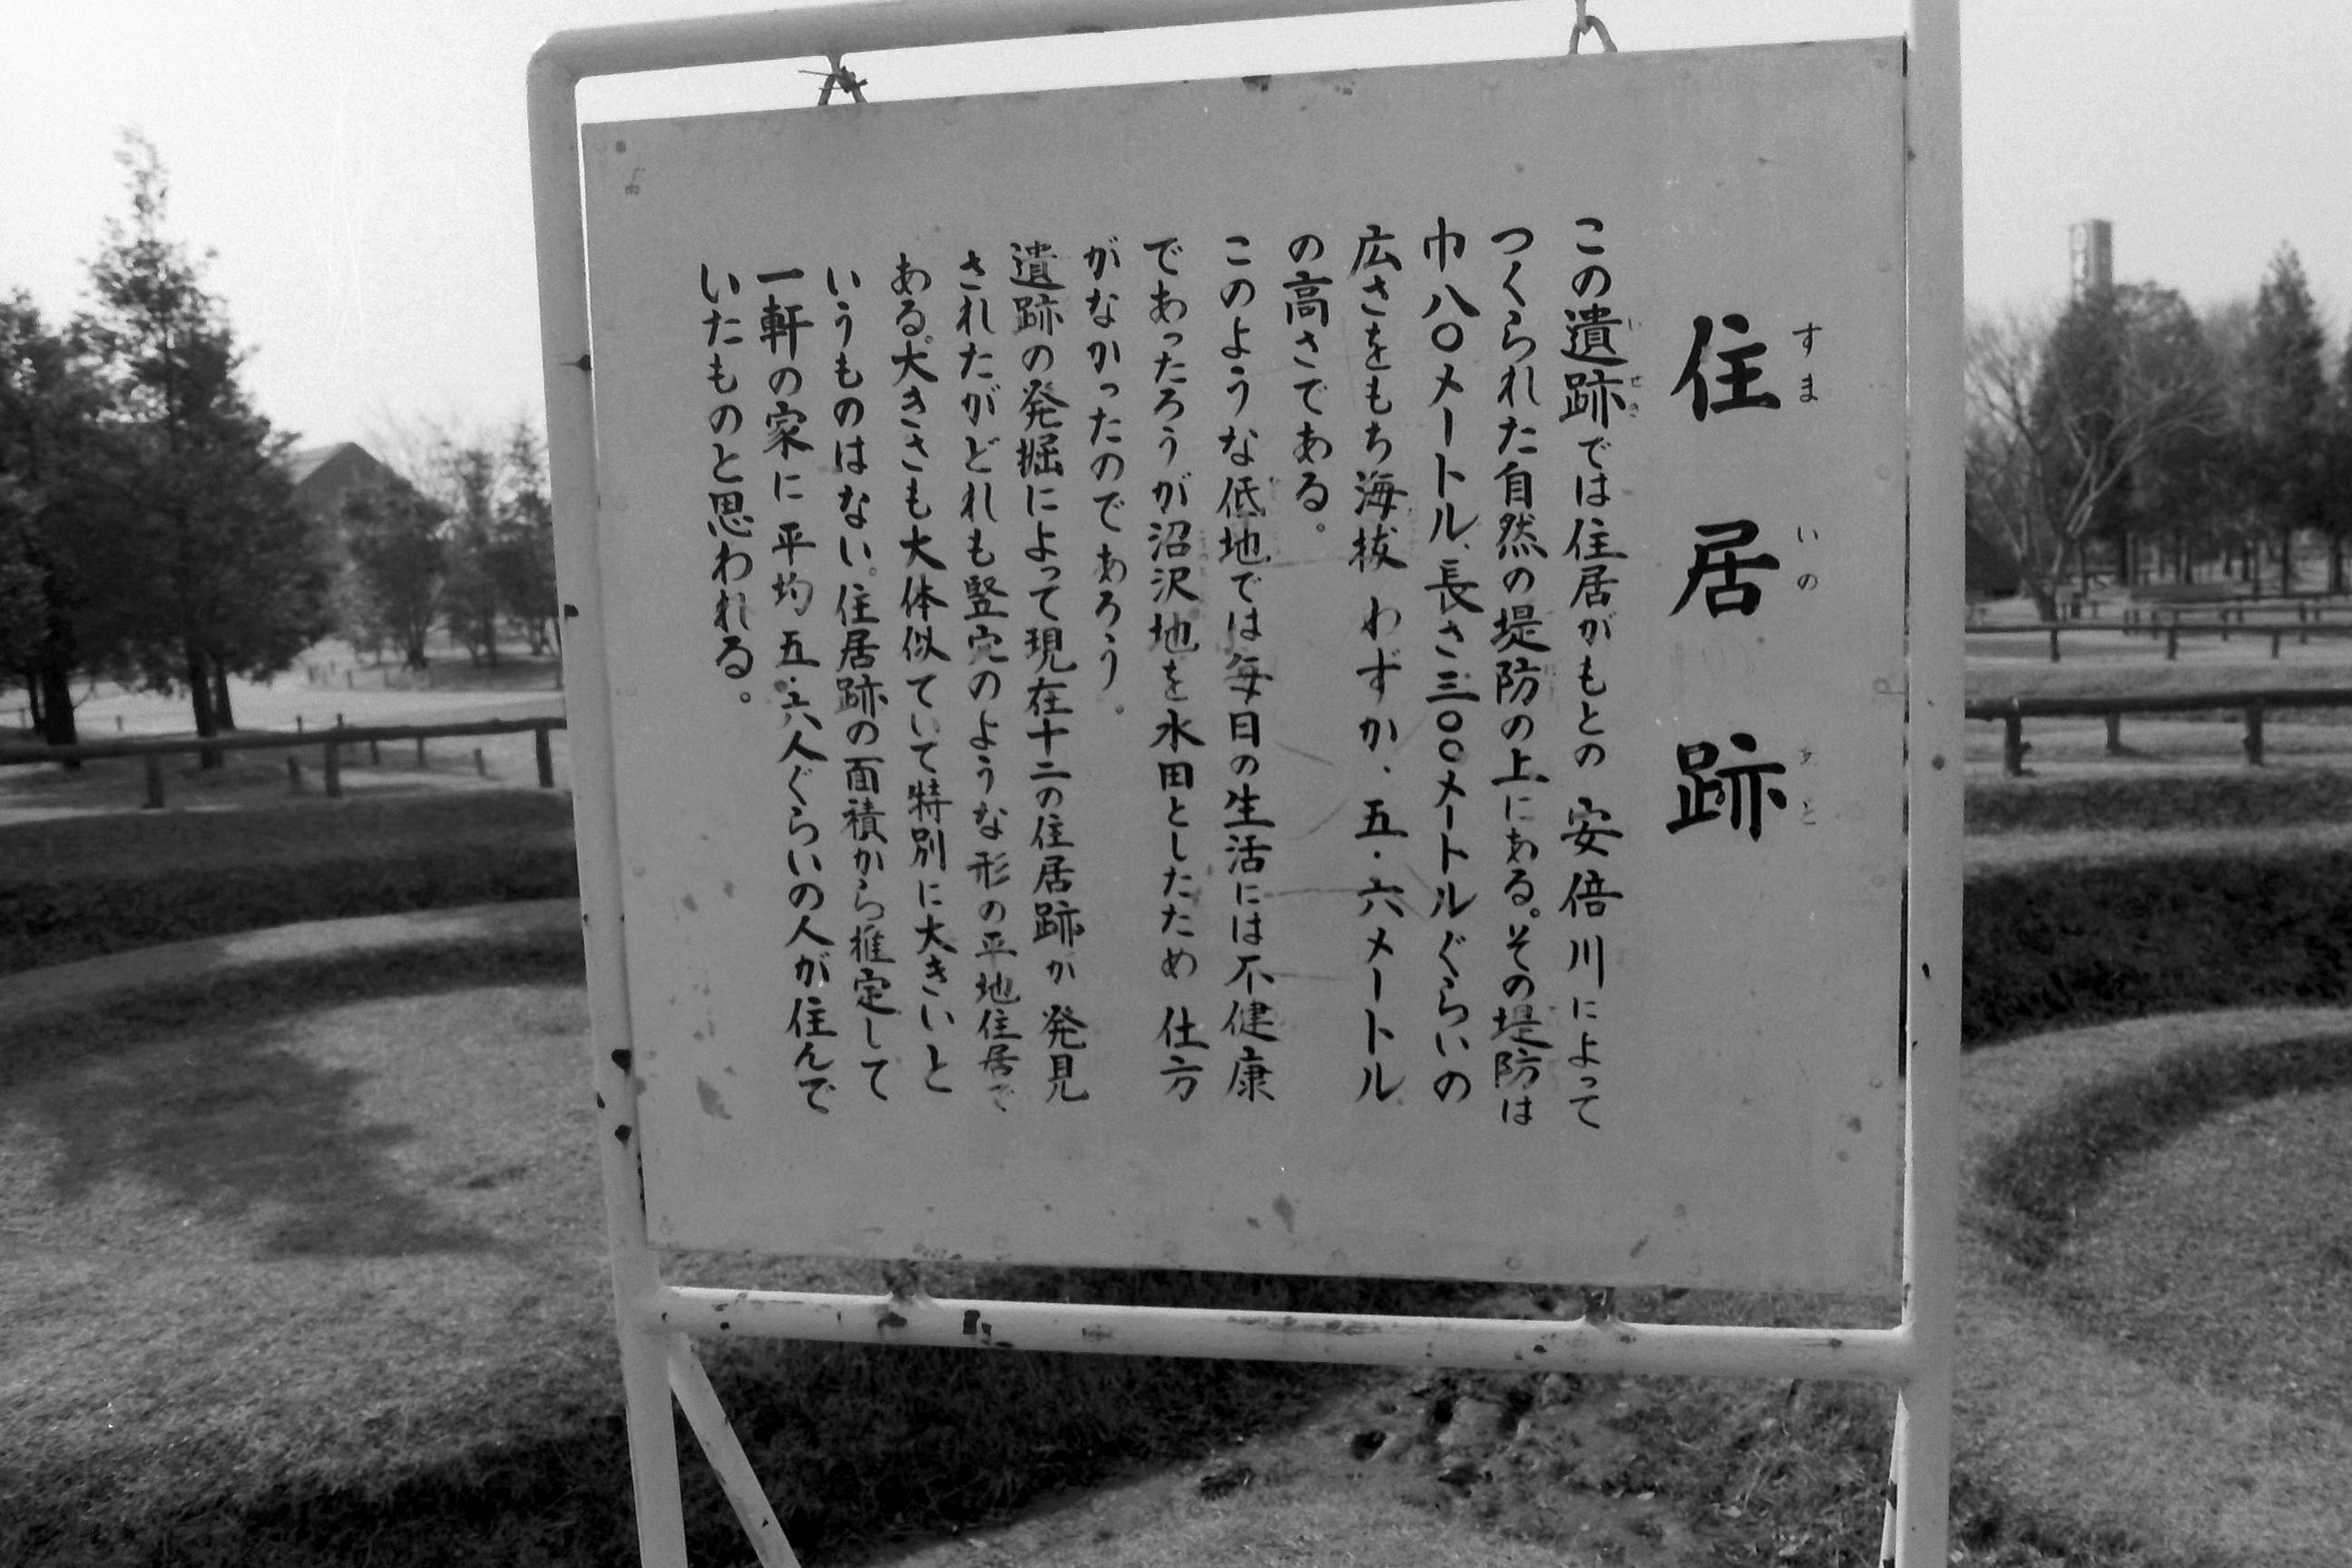 住居跡
すまいのあと
この遺跡では住居がもとの安倍川によって
いせき
つくられた自然の堤防の上にある。その堤防は
巾八〇メートル、長さ三〇〇メートルぐらいの
広さをもち海抜わずか、五・六メートル
の高さである。
このような低地では毎日の生活には不健康
であったろうが沼沢地を水田としたため仕方
がなかったのであろう。
遺跡の発掘によって現在十二の住居跡が発見
されたがどれも竪穴のような形の平地住居で
ある。大きさも大体似ていて特別に大きいと
いうものはない。住居跡の面積から推定して
一軒の家に平均五・六人ぐらいの人が住んで
いたものと思われる。